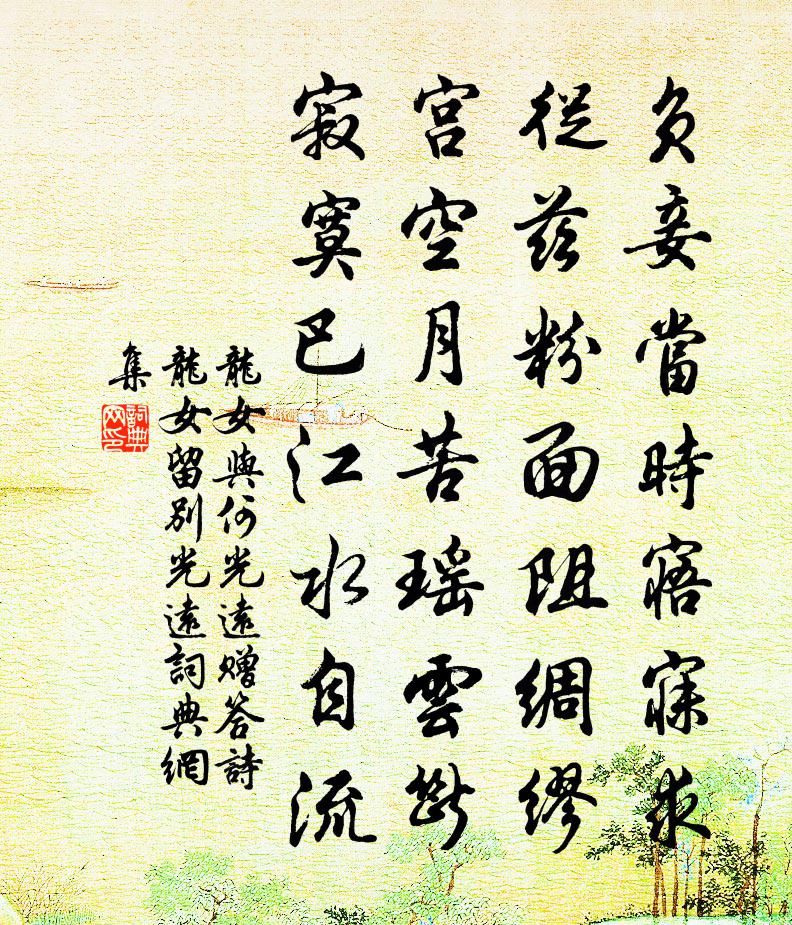 負妾當時寤寐求
從茲粉面阻綢繆
宮空月苦瑤雲斷
寂寞巴江水自流
龍女與何光遠贈答詩
龍女留別光遠詞典網
集
詞典网印